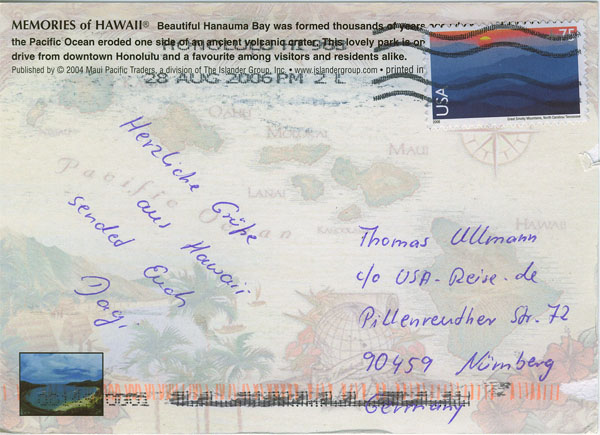 MEMORIES of HAWAII® Beautiful Hanauma Bay was formed thousands of years
the Pacific Ocean eroded one side of an ancient volcanic crater. This lovely park is on
drive from downtown Honolulu and a favourite among visitors and residents alike.
Published by © 2004 Maui Pacific Traders, a division of The Islander Group, Inc. • www.islandergroup.com • printed in
HONOLULU HI 968
28 AUG 2006 PM 2 L
75
USA
2006
Great Smoky Mountains, North Carolina/Tennessee
OAHU
MOLOKAI
MAUI
LANAI
HAWAII
Pacific Ocean
Herzliche Grüße
aus Hawaii
sendet Euch
Dag.
Thomas Ullmann
c/o USA-Reise.de
Pillenreuther Str. 72
90459 Nürnberg
Germany